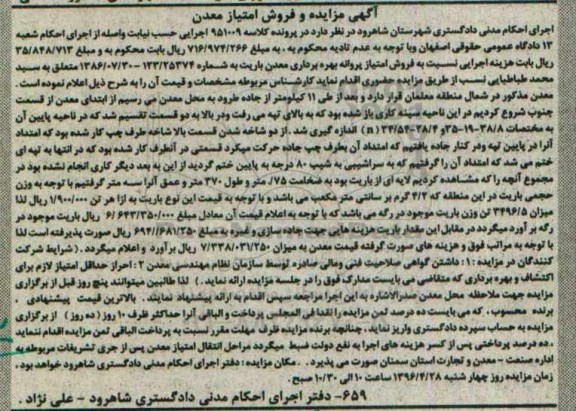 آگهی مزایده و فروش امتیاز معدن
اجرای احکام مدنی دادگستری شهرستان شاهرود در نظر دارد در پرونده کلاسه ۹۵۱۰۰۹ اجرایی حسب نیابت واصله از اجرای احکام شعبه
۱۳ دادگاه عمومی حقوقی اصفهان وبا توجه به عدم تادیه محکوم به ، به مبلغ ۷۱۶/۹۷۴/۲۶۶ ریال بابت محکوم به و مبلغ ۳۵/۸۴۸/۷۱۳
ریال بابت هزینه اجرایی نسبت به فروش امتیاز پروانه بهره برداری معدن باریت به شماره ۱۲۳/۲۵۳۷۴-۱۳۸۶/۰۷/۳۰ متعلق به سید
محمد طباطبایی نسب از طریق مزایده حضوری اقدام نماید کارشناس مربوطه مشخصات و قیمت آن را به شرح ذیل اعلام نموده است .
معدن مذکور در شمال منطقه معلمان قرار دارد و بعد از طی ۱۱ کیلومتر از جاده طرود به محل معدن می رسیم از ابتدای معدن از قسمت
جنوب شروع کردیم در این ناحیه سینه کاری باز شده بود که به بالای تپه می رفت ودر بالا به دو قسمت تقسیم شد که در ناحیه پایین آن
به مختصات ۳۸/۸-۱۹-۳۵و ۳۸/۴-۵۴-۳۴ (n) اندازه گیری شد . از دو شاخه شدن قسمت بالا شاخه طرف چپ کار شده بود که امتداد
آنرا در پایین تپه ودر کنار جاده یافتیم که امتداد آن بطرف چپ جاده حرکت میکرد قسمتی در آنطرف کار شده بود که در انتها به تپه ای
ختم می شد که امتداد آن را گرفتیم که به سراشیبی به شیب ۸۰ درجه به پایین ختم گردید از این به بعد دیگر کاری انجام نشده بود در
مجموع آنچه را که مشاهده کردیم لایه ای از باریت بود به ضخامت ۷۵/. متر و طول ۳۷۰ متر و عمق آنرا سه متر گرفتیم با توجه به وزن
حجمی باریت در این منطقه که ۴/۲ گرم بر سانتی متر مکعب می باشد و با توجه به قیمت این نوع باریت به ازا هر تن ۱/۹۰۰/۰۰۰ ریال لذا
میزان ۳۴۹۶/۵ تن وزن باریت موجود در رگه می باشد که با توجه به اعلام قیمت آن معادل مبلغ ۶/۶۴۳/۳۵۰/۰۰۰ ریال باریت موجود در
رگه بر آورد میگردد در مقابل این مقدار باریت هزینه هایی جهت جاده سازی و غیره به مبلغ ۶۹۴/۶۸۱/۲۵۰ ریال صورت پذیرفته است لذا
با توجه به مراتب فوق و هزینه های صورت گرفته قیمت معدن به میزان ۷/۳۳۸/۰۳۱/۲۵۰ ریال برآورد و اعلام میگردد . ( شرایط شرکت
کنندگان در مزایده : ۱: داشتن گواهی صلاحیت فنی ومالی صادره توسط سازمان نظام مهندسی معدن ۲: احراز حداقل امتیاز لازم برای
اکتشاف و بهره برداری که متقاضی می بایست مدارک فوق را در جلسه مزایده ارائه نماید . ) لذا طالبین میتوانند پنج روز قبل از برگزاری
مزایده جهت ملاحظه محل معدن صدرالاشاره به این اجرا مراجعه سپس اقدام به ارائه پیشنهاد نمایند . بالاترین قیمت پیشنهادی ،
برنده محسوب ، که می بایست ده درصد ثمن مزایده را نقدا فی المجلس پرداخت و الباقی آنرا حداکثر ظرف ۱۰ روز ( ده روز ) از برگزاری
مزایده به حساب سپرده دادگستری واریز نماید . چنانچه برنده مزایده ظرف مهلت مقرر نسبت به پرداخت الباقی ثمن مزایده اقدام ننماید
، ده درصد پرداختی پس از کسر هزینه های اجرا به نفع دولت ضبط میگردد مراحل انتقال امتیاز معدن پس از جری تشریفات مربوطه به
اداره صنعت - معدن و تجارت استان سمنان صورت می پذیرد . . مکان مزایده : دفتر اجرای احکام مدنی دادگستری شاهرود خواهد بود ،
زمان مزایده روز چهار شنبه ۱۳۹۶/۴/۲۸ ساعت ۱۰ الی ۱۰/۳۰ صبح .
۶۵۹- دفتر اجرای احکام مدنی دادگستری شاهرود - علی نژاد .